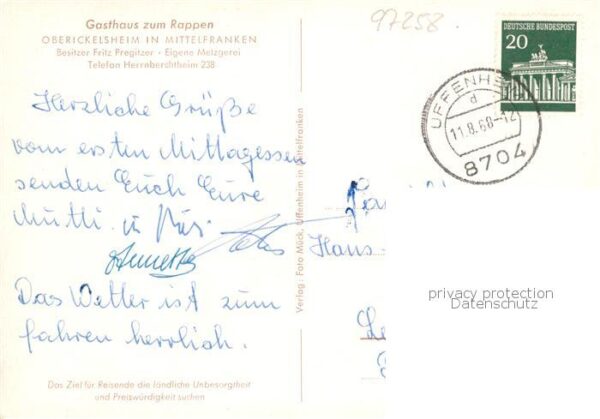 Gasthaus zum Rappen
OBERICKELSHEIM IN MITTELFRANKEN
Besitzer Fritz Pregitzer · Eigene Metzgerei
Telefon Herrnberchtheim 238
97258
DEUTSCHE BUNDESPOST
20
UFFENHEIM
d
11.8.68-12
8704
Herzliche Grüße
vom ersten Mittagessen
senden Euch Eure
Mutti u.
Annette
Das Wetter ist zum
fahren herrlich.
Verlag: Foto Mück, Uffenheim in Mittelfranken
Hans-
privacy protection
Datenschutz
Das Ziel für Reisende die ländliche Unbesorgtheit
und Preiswürdigkeit suchen